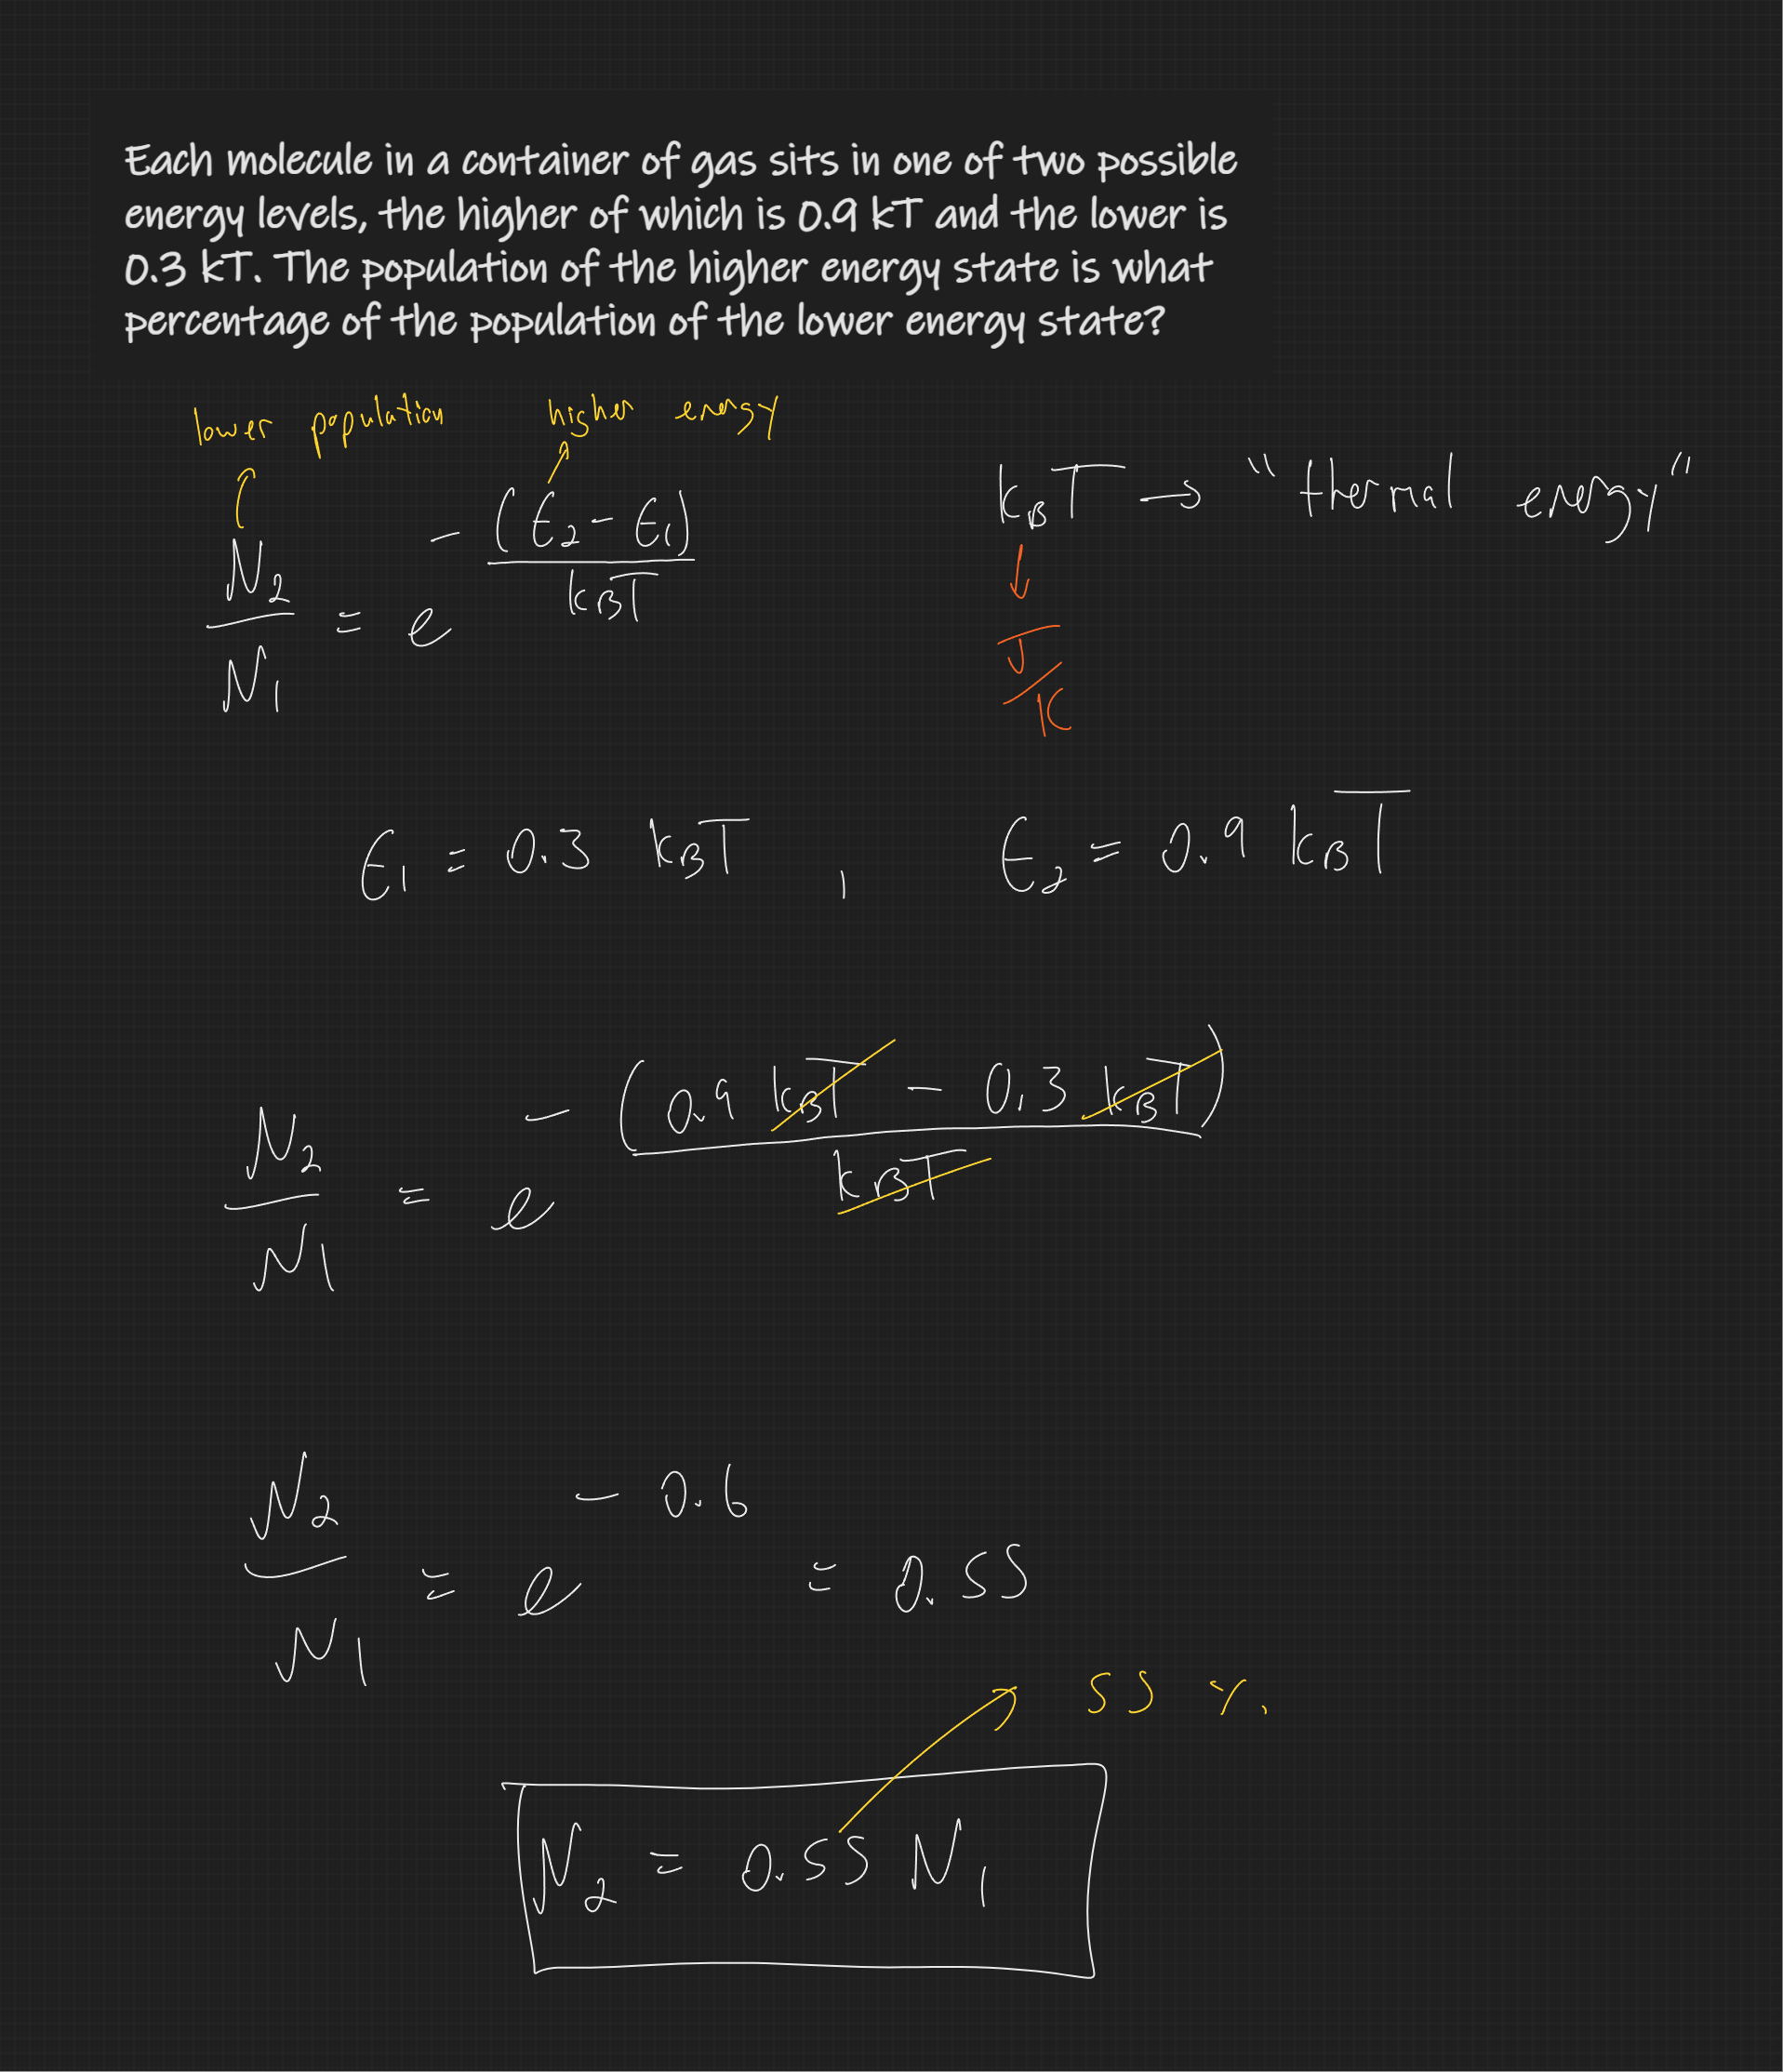 Each molecule in a container of gas sits in one of two possible
energy levels, the higher of which is 0.9 kT and the lower is
0.3 kT. The population of the higher energy state is what
percentage of the population of the lower energy state?
lower population
higher energy
N₂/N₁ = e^(-(ϵ₂ - ϵ₁)/k_BT)
k_BT → "thermal energy"
J/K
ϵ₁ = 0.3 k_BT , ϵ₂ = 0.9 k_BT
N₂/N₁ = e^(-(0.9 k_BT - 0.3 k_BT)/k_BT)
N₂/N₁ = e^(-0.6) = 0.55
55 %
N₂ = 0.55 N₁